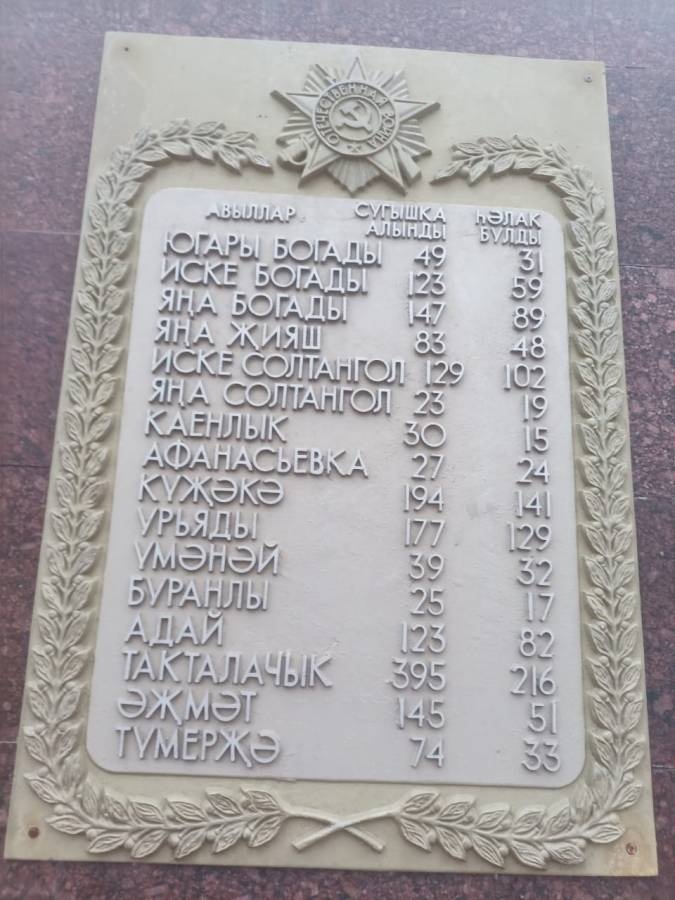 ОТЕЧЕСТВЕННАЯ ВОЙНА
АВЫЛЛАР СУГЫШКА АЛЫНДЫ ҺӘЛАК БУЛДЫ
ЮГАРЫ БОГАДЫ 49 31
ИСКЕ БОГАДЫ 123 59
ЯҢА БОГАДЫ 147 89
ЯҢА ҖИЯШ 83 48
ИСКЕ СОЛТАНГОЛ 129 102
ЯҢА СОЛТАНГОЛ 23 19
КАЕНЛЫК 30 15
АФАНАСЬЕВКА 27 24
КҮҖӘКӘ 194 141
УРЬЯДЫ 177 129
ҮМӘНӘЙ 39 32
БУРАНЛЫ 25 17
АДАЙ 123 82
ТАКТАЛАЧЫК 395 216
ӘҖМӘТ 145 51
ТҮМЕРҖӘ 74 33